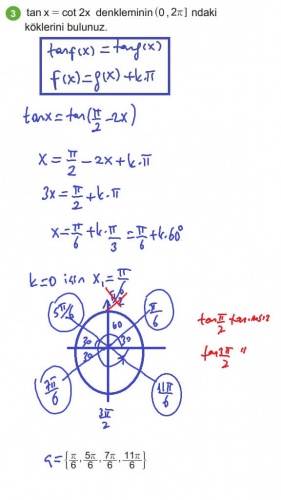 3 tan x = cot 2x denkleminin (0, 2π] ndaki
köklerini bulunuz.
tanf(x) = tang(x)
f(x) = g(x) + k.π
tanx = tan(π/2 - 2x)
x = π/2 - 2x + k.π
3x = π/2 + k.π
x = π/6 + k.π/3 = π/6 + k.60°
k=0 için x₁ = π/6
π/2
5π/6
π/6
60
30 30
30
tan π/2 tanımsız
tan 3π/2 "
7π/6
11π/6
3π/2
Ç = {π/6, 5π/6, 7π/6, 11π/6}